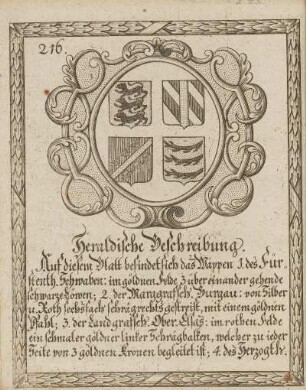 216.
Heraldische Beschreibung.
Auf diesem Blatt befindet sich das Wappen 1. des Für-
stenth. Schwaben: im goldnen Felde 3 über einander gehende
schwarze Löwen; 2. der Marggrafsch. Burgau: von Silber
u. Roth sechsfach schrägrechts gestreift, mit einem goldnen
Pfahl; 3. der Landgrafsch. Ober-Elsas: im rothen Felde
ein schmaler goldner linker Schrägbalken, welcher zu jeder
Seite von 3 goldnen Kronen begleitet ist; 4. des Herzogl.